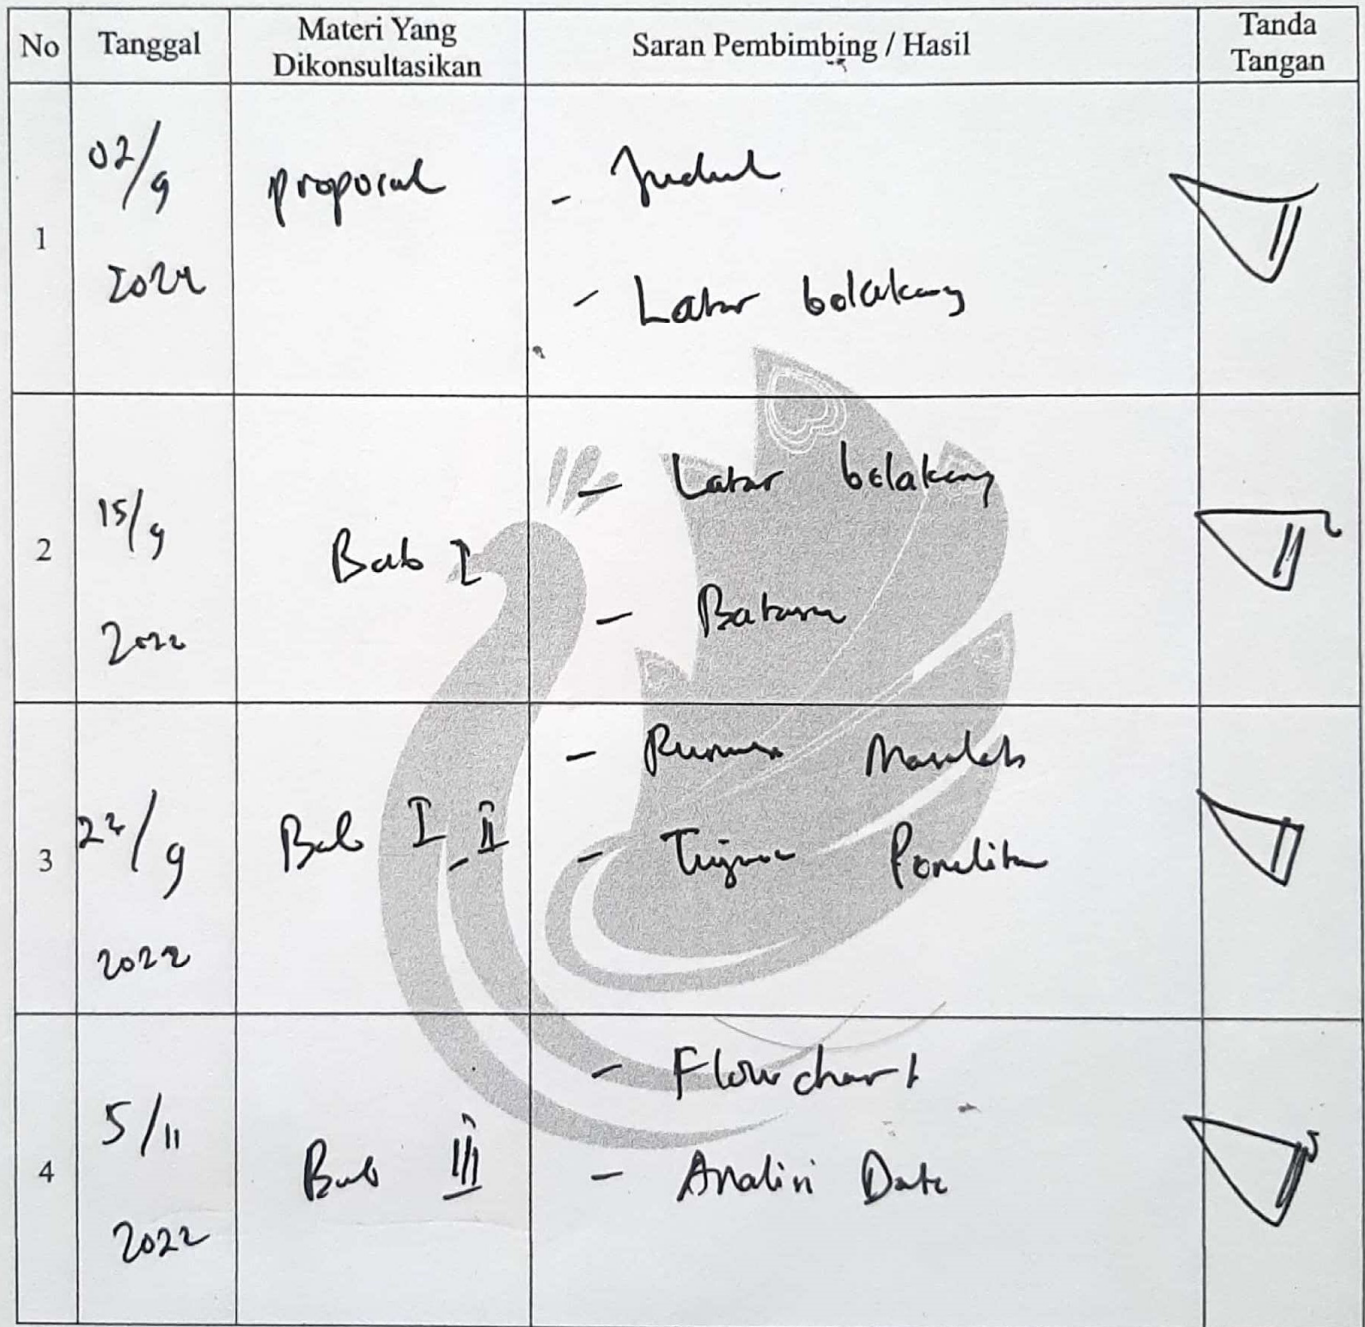 No Tanggal Materi Yang Dikonsultasikan Saran Pembimbing / Hasil Tanda Tangan
1
02/9
2022
proposal
- Judul
- Latar belakang
2
15/9
2022
Bab I
- Latar belakang
- Batasan
3
22/9
2022
Bab I - II
- Rumusan Masalah
- Tujuan Penelitian
4
5/11
2022
Bab III
- Flowchart
- Analisi Data